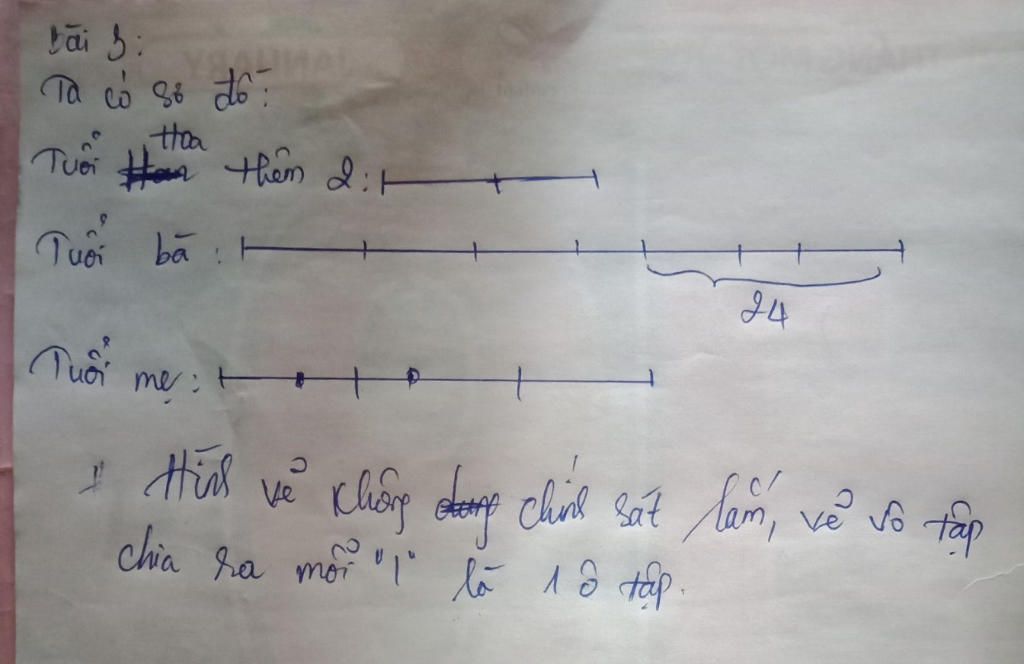 Bài 3:
Ta có sơ đồ:
Tuổi Hoa thêm 2:
Tuổi bà:
24
Tuổi mẹ:
Hình vẽ không chính sát lắm, vẽ vô tập
chia ra mỗi "1" là 1 ô tập.